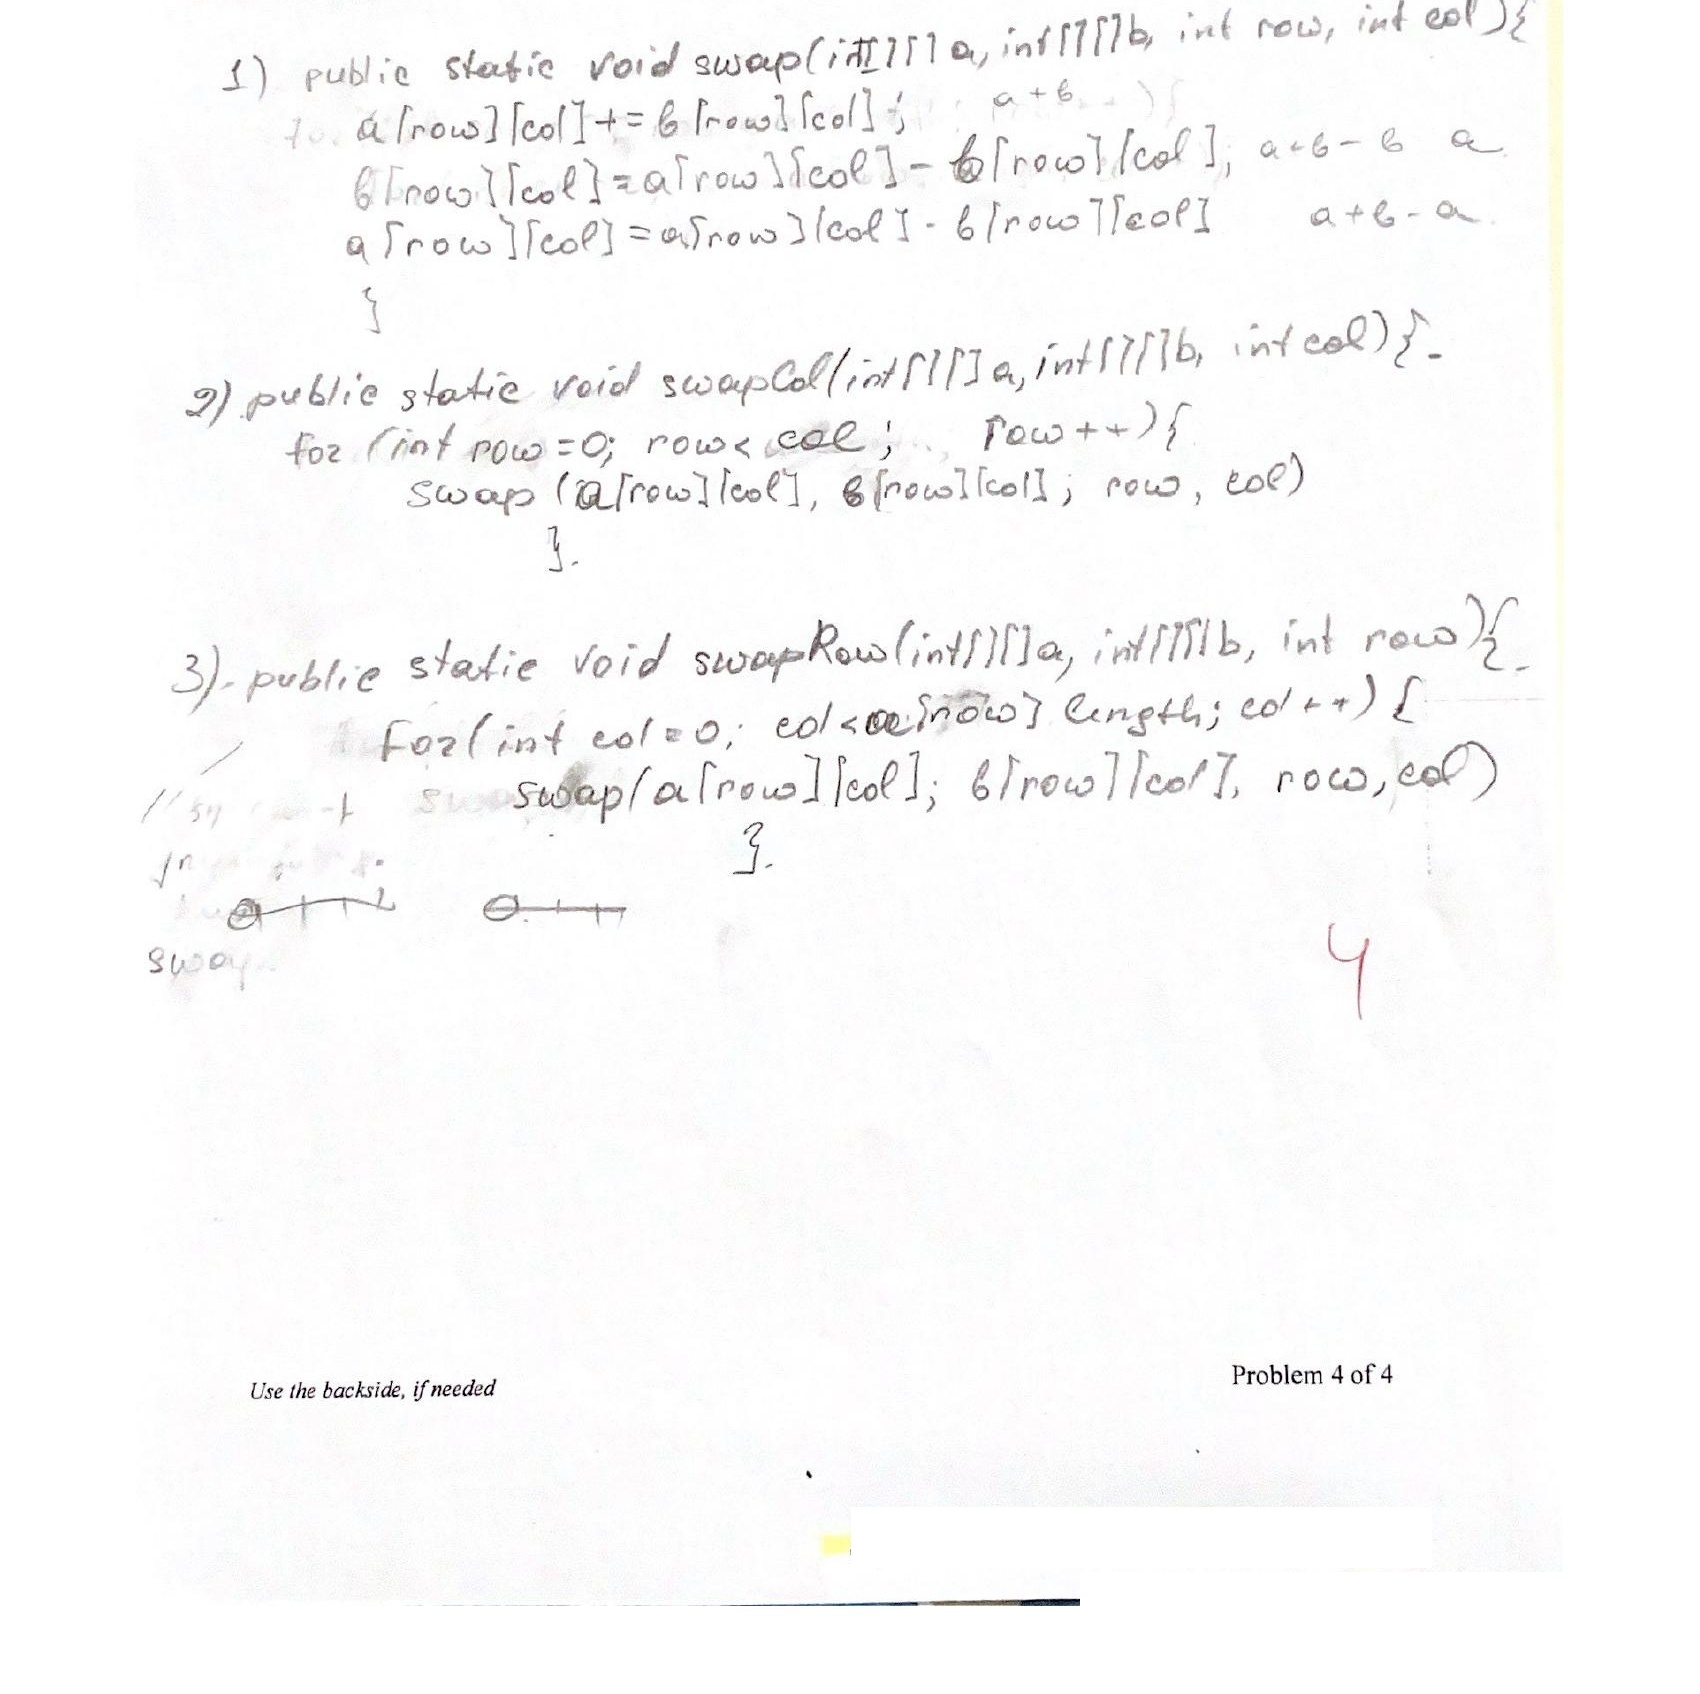 1) public static void swap(int[][] a, int[][]b, int row, int col){
a[row][col]+=b[row][col]; a+b
b[row][col]=a[row][col]-b[row][col]; a+b-b a
a[row][col]=a[row][col]-b[row][col] a+b-a
}
2) public static void swapCol(int[][]a, int[][]b, int col){
for (int row=0; row< col; row++){
swap (a[row][col], b[row][col]; row, col)
}
3) public static void swapRow(int[][]a, int[][]b, int row){
for(int col=0; col<a[row] length; col++){
swap(a[row][col]; b[row][col], row, col)
}
4
Use the backside, if needed
Problem 4 of 4